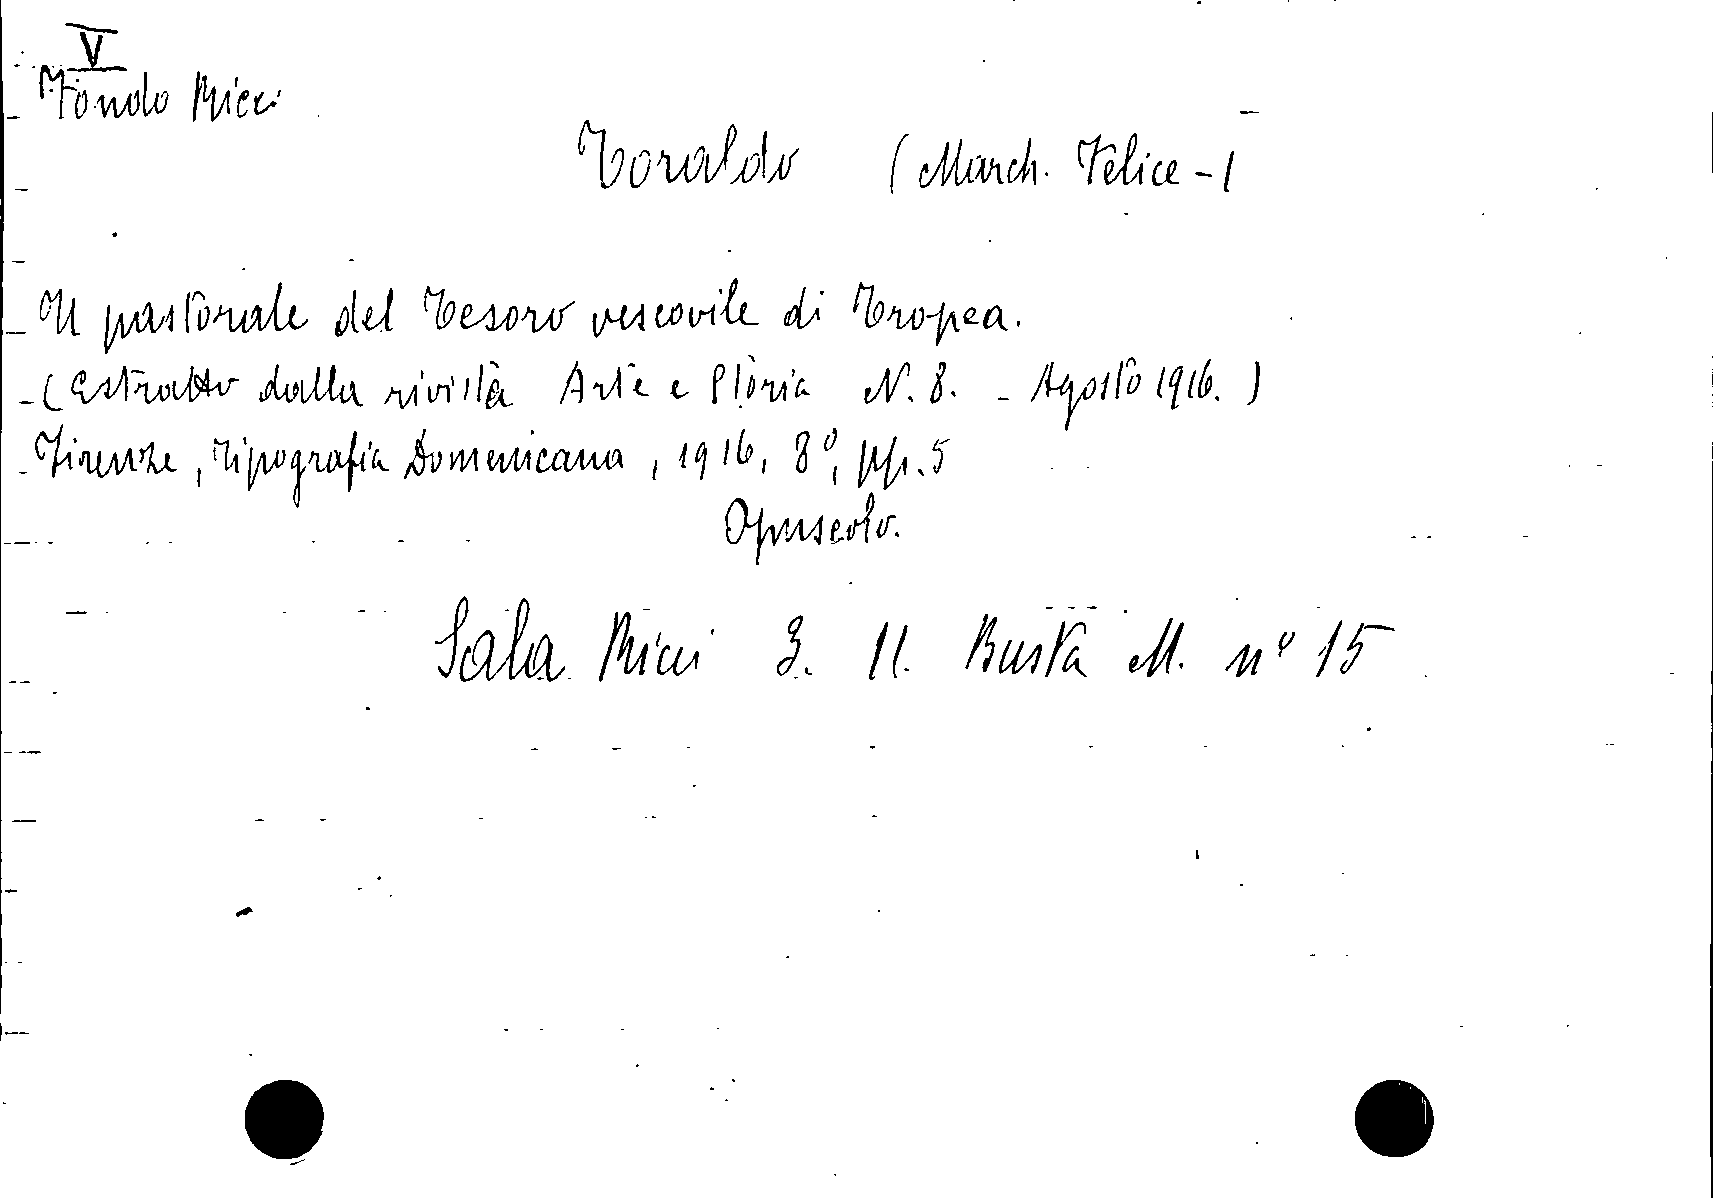 V
Fondo Ricci
Toraldo (March. Felice-)
Il pastorale del Tesoro vescovile di Tropea.
(Estratto dalla rivista Arte e Storia N. 8. - Agosto 1916.)
Firenze, Tipografia Domenicana, 1916, 8º, pp. 5
Opuscolo.
Sala Ricci 3. II. Busta M. nº 15